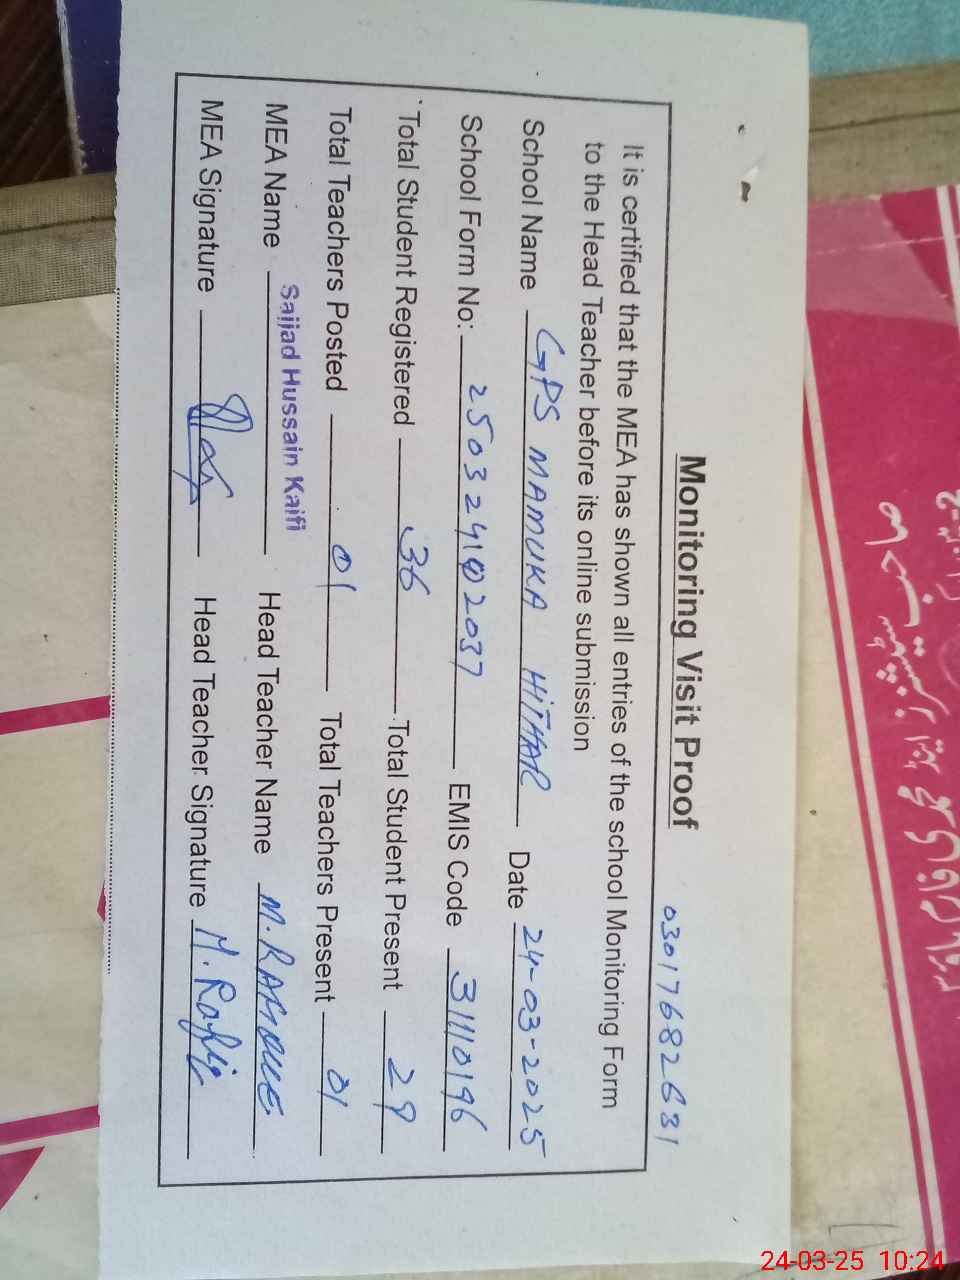 Monitoring Visit Proof 03017682631
It is certified that the MEA has shown all entries of the school Monitoring Form
to the Head Teacher before its online submission
School Name GPS MAMUKA HITHAR Date 24-03-2025
School Form No: 25032402037 EMIS Code 31110196
Total Student Registered 36 Total Student Present 29
Total Teachers Posted 01 Total Teachers Present 01
MEA Name Sajjad Hussain Kaifi Head Teacher Name M.
MEA Signature Head Teacher Signature M. Rafiq
24-03-25 10:24